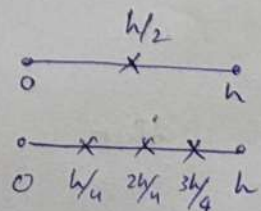 h/2
0 h
0 h/4 2h/4 3h/4 h